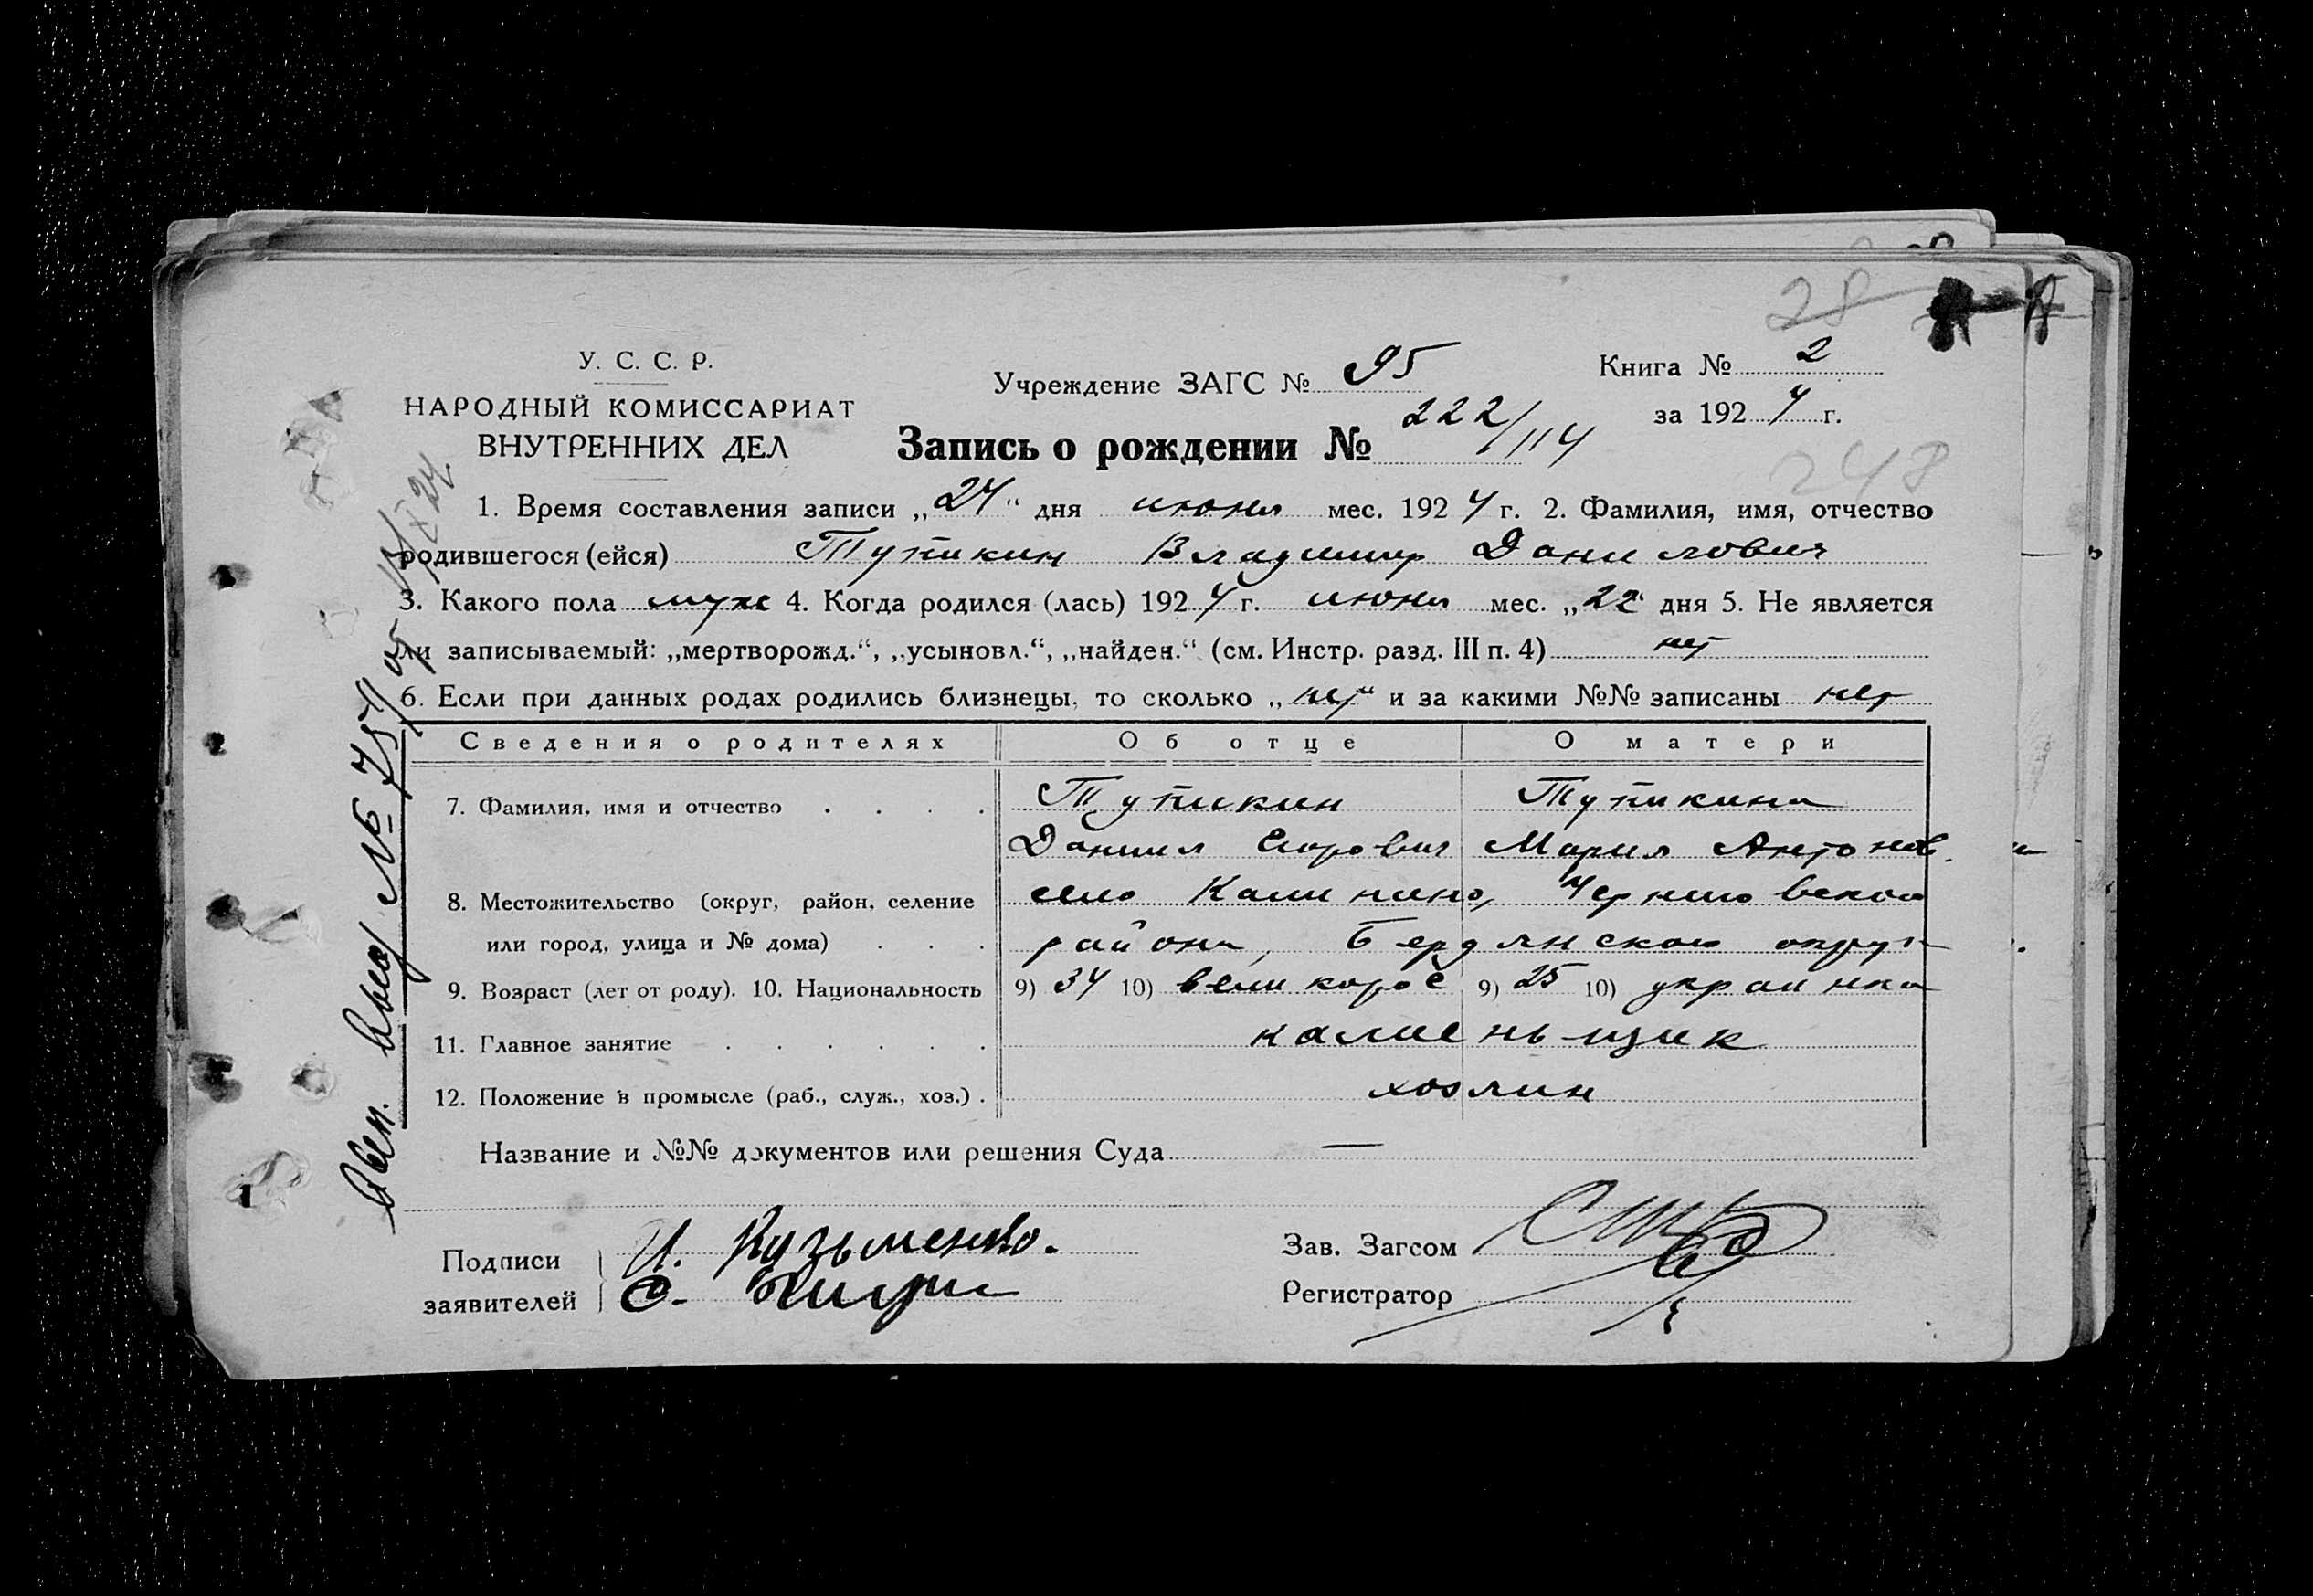 28
У. С. С. Р.
НАРОДНЫЙ КОМИССАРИАТ
ВНУТРЕННИХ ДЕЛ
Учреждение ЗАГС № 95
Книга № 2
за 1924 г.
Запись о рождении № 222/114
248
1. Время составления записи „24“ дня июня мес. 1924 г. 2. Фамилия, имя, отчество
родившегося (ейся) Тупикин Владимир Данилович
3. Какого пола муж 4. Когда родился (лась) 1924 г. июня мес. „22“ дня 5. Не является
ли записываемый: „мертворожд.“, „усыновл.“, „найден.“ (см. Инстр. разд. III п. 4) нет
6. Если при данных родах родились близнецы, то сколько „нет“ и за какими №№ записаны нет
Сведения о родителях Об отце О матери
7. Фамилия, имя и отчество . . . . Тупикин Тупикина
Даниил Егорович Мария Антонов.
8. Местожительство (округ, район, селение село Калинино, Черниговского
или город, улица и № дома) . . . района, Бердянского округа
9. Возраст (лет от роду). 10. Национальность 9) 34 10) великорос 9) 25 10) украинка
11. Главное занятие . . . . . . каменьщик
12. Положение в промысле (раб., служ., хоз.) . хозяин
Название и №№ документов или решения Суда —
Подписи
заявителей
И. Кузьменко.
С.
Зав. Загсом
Регистратор
№ 757 от